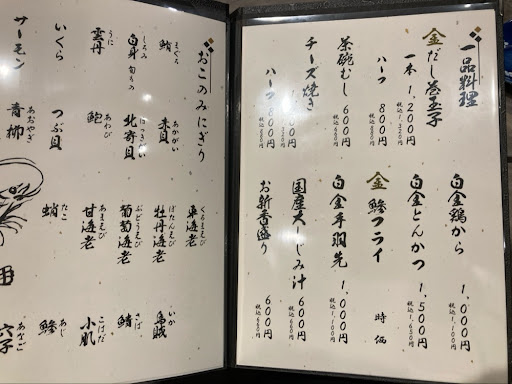 一品料理
金 だし巻玉子
一本 1,200円
税込 1,320円
ハーフ 800円
税込 880円
茶碗むし 600円
税込 660円
チーズ焼き
税込 660円
白金鶏から 1,000円
税込 1,100円
白金とんかつ 1,500円
税込 1,650円
金 鯵フライ 時価
白金手羽先 1,000円
税込 1,100円
国産大しじみ汁 600円
税込 660円
お新香盛り 600円
税込 660円
おこのみにぎり
鮪 まぐろ
白身 しろみ 旬もの
雲丹 うに
いくら
サーモン
赤貝 あかがい
北寄貝 ほっきがい
鮑 あわび
つぶ貝
青柳 あおやぎ
車海老 くるまえび
牡丹海老 ぼたんえび
葡萄海老 ぶどうえび
甘海老 あまえび
蛸 たこ
烏賊 いか
鯖 さば
小肌 こはだ
鯵 あじ
穴子 あなご